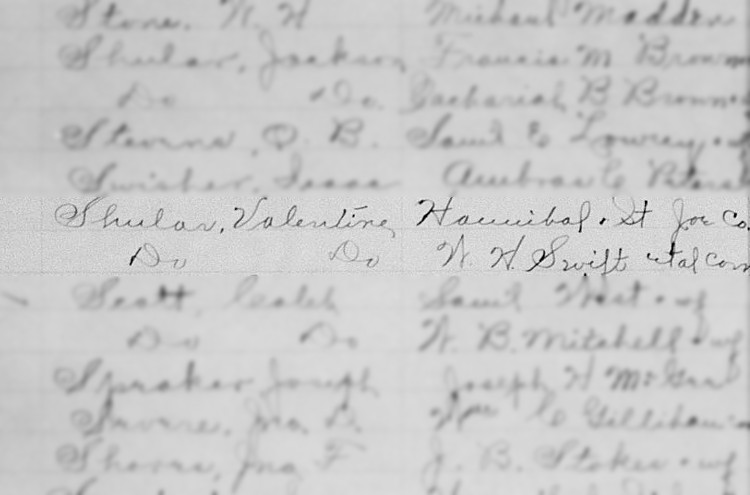 Stone, W. H Michael Madden
Shular, Jackson Francis M Brown
Do Do Zachariah B Brown
Stevens, O. B. Saml E Lowrey
Swisher, Isaac Ambrose C
Shular, Valentine Hannibal & St Joe Co.
Do Do W. H. Swift et al com
Scott, Caleb Saml West & wf
Do Do W. B. Mitchell & wf
Spraker Joseph Joseph H
Jno. D. Wm C
Jno F J. B. Stokes & wf